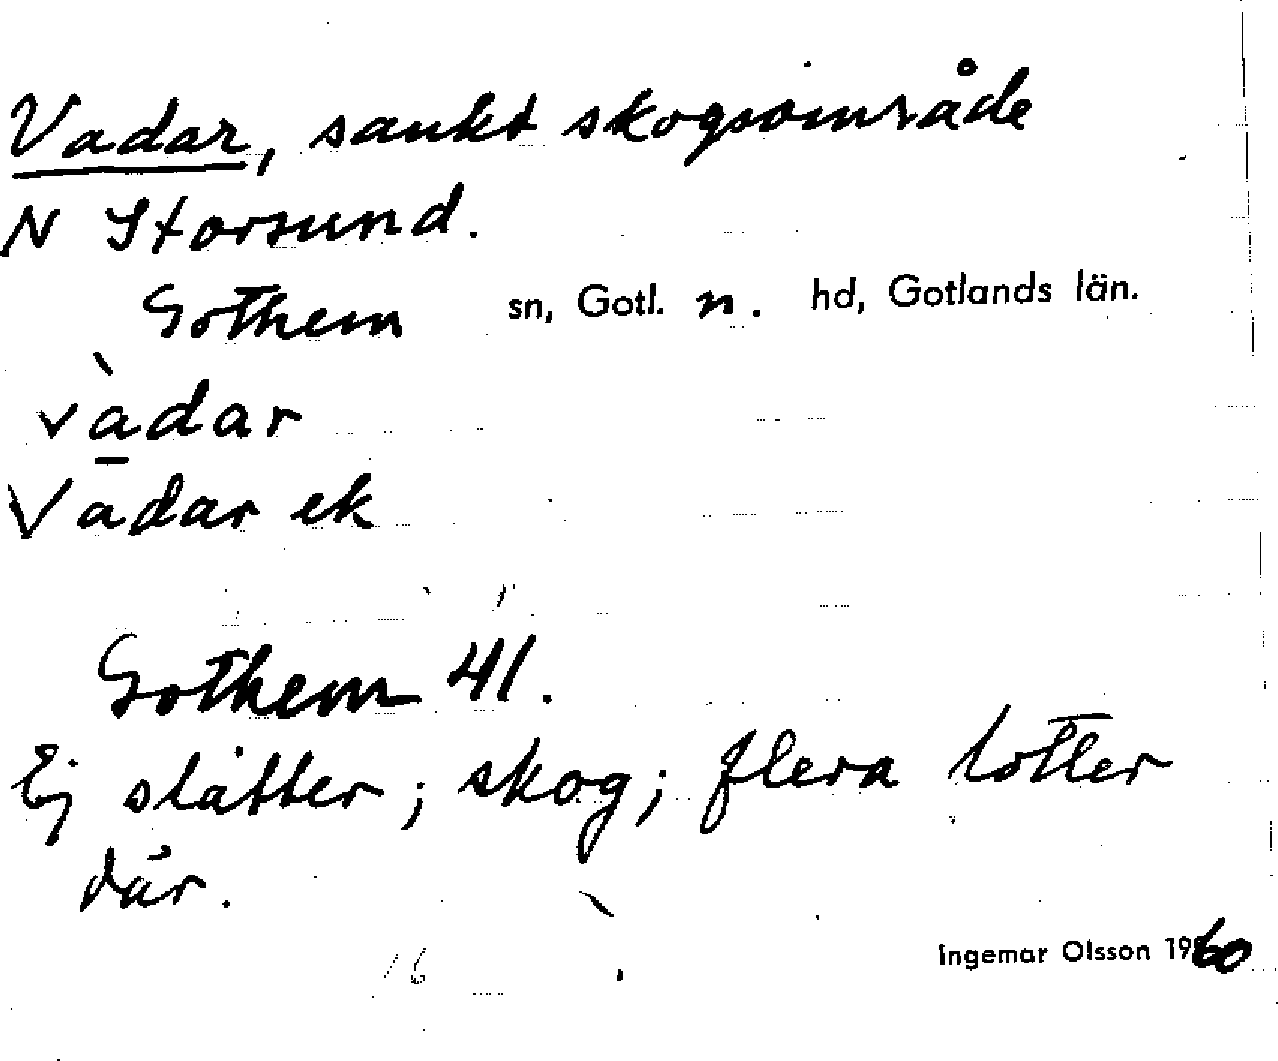 Vadar, sankt skogsområde
N Storsund.
Gothem sn, Gotl. n. hd, Gotlands län.
và̱dar
Vadar ek
Gothem 41.
Ej slåtter; skog; flera lotter
där.
16
Ingemar Olsson 1960